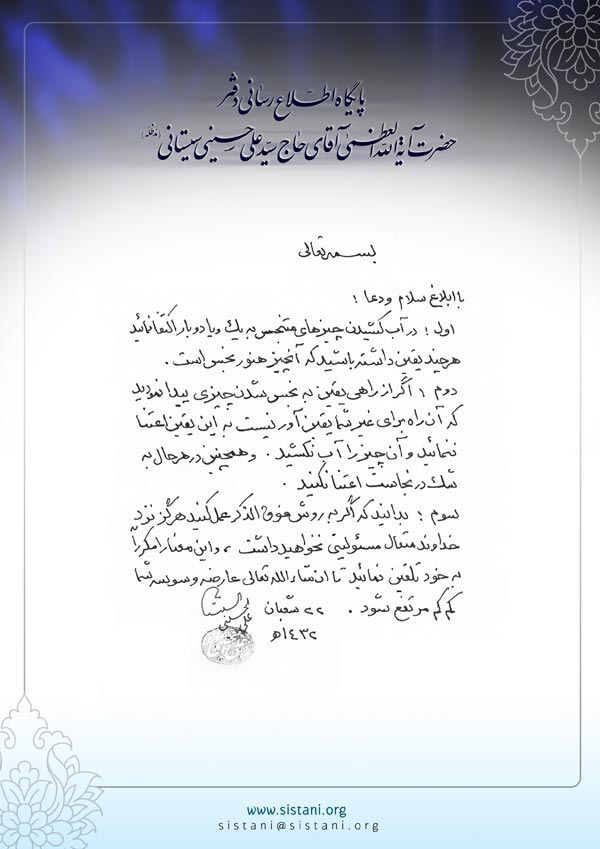 پایگاه اطلاع رسانی دفتر
حضرت آیة الله العظمی آقای حاج سید علی حسینی سیستانی (مدظله)
بسمه تعالی
با ابلاغ سلام و دعا ؛
اول ؛ در آب کشیدن چیزهای متنجس به یک و یا دو بار اکتفا نمائید
هر چند یقین داشته باشید که آنچیز هنوز نجس است .
دوم ؛ اگر از راهی یقین به نجس شدن چیزی پیدا نمودید
که آن راه برای غیر شما یقین آور نیست به این یقین اعتنا
ننمائید و آن چیز را آب نکشید . و همچنین در هر حال به
شک در نجاست اعتنا نکنید .
سوم ؛ بدانید که اگر به روش فوق الذکر عمل کنید هرگز نزد
خداوند متعال مسئولیتی نخواهید داشت ، و این معنا را مکرراً
به خود تلقین نمائید تا ان شاء الله تعالی عارضه وسوسه شما
کم کم مرتفع شود . ۲۲ شعبان
۱۴۳۲هـ
علی الحسینی
www.sistani.org
sistani@sistani.org